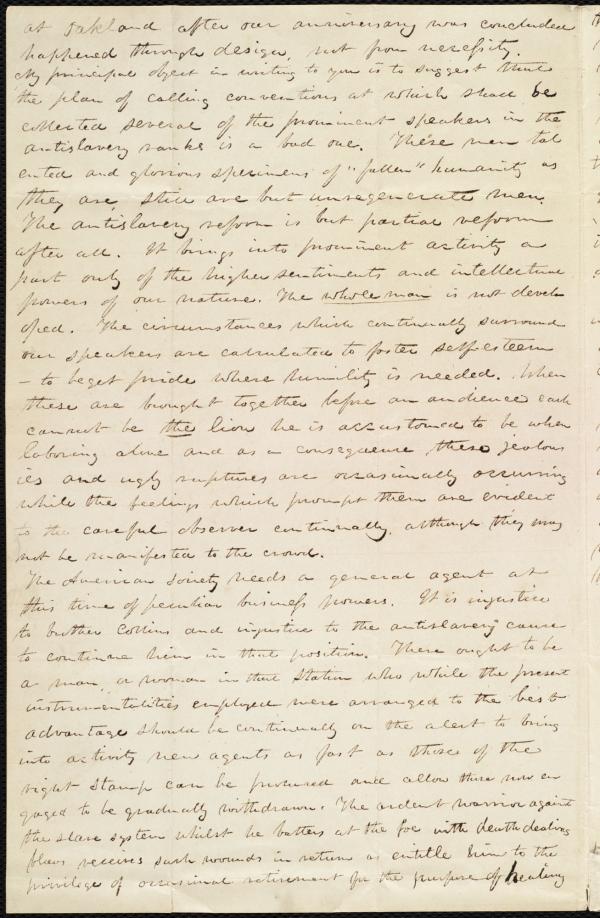 at Oakland after our anniversary was concluded
happened through design, not from necessity.
My principal object in writing to you is to suggest that
the plan of calling conventions at which shall be
collected several of the prominent speakers in the
antislavery ranks is a bad one. These men tal
ented and glorious specimens of "fallen" humanity as
they are, still are but unregenerate men.
The antislavery reform is but partial reform
after all. It brings into prominent activity a
part only of the higher sentiments and intellectual
powers of our nature. The whole man is not devel
oped. The circumstances which continually surround
our speakers are calculated to foster self-esteem
– to beget pride where humility is needed. When
these are brought together before an audience each
cannot be the lion he is accustomed to be when
laboring alone and as a consequence these jealous
ies and ugly ruptures are occasionally occurring
while the feelings which prompt them are evident
to the careful observer continually, although they may
not be manifested to the crowd.
The American Society needs a general agent at
this time of peculiar business powers. It is injustice
to brother Collins and injustice to the antislavery cause
to continue him in that position. There ought to be
a man, a woman in that station who while the present
instrumentalities employed were arranged to the best
advantage should be continually on the alert to bring
into activity new agents as fast as those of the
right stamp can be procured and allow those now en
gaged to be gradually withdrawn. The ardent warrior against
the slave system whilst he batters at the foe with death dealing
blows receives such wounds in return as entitle him to the
privilege of occasional retirement for the purpose of healing